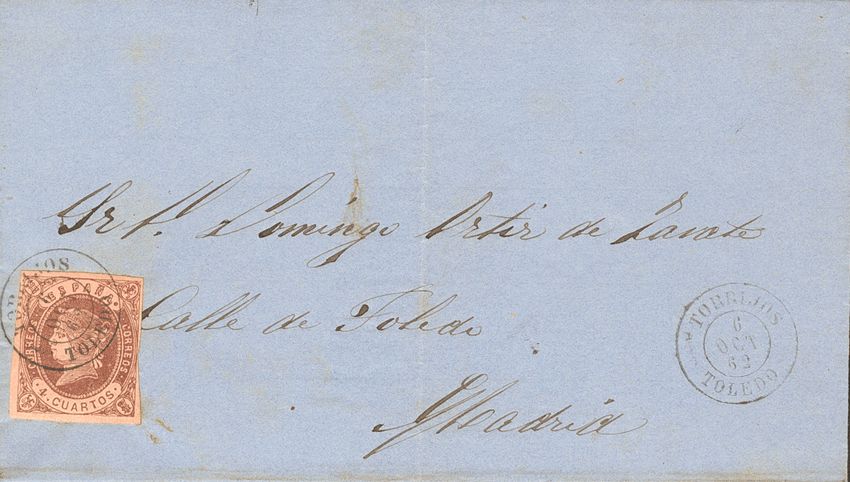 Sr D. Domingo Ortiz de Zarate
Calle de Toledo
Madrid
TORRIJOS
TOLEDO
ESPAÑA
CORREOS
4 CUARTOS
TORRIJOS
6
OCT
62
TOLEDO